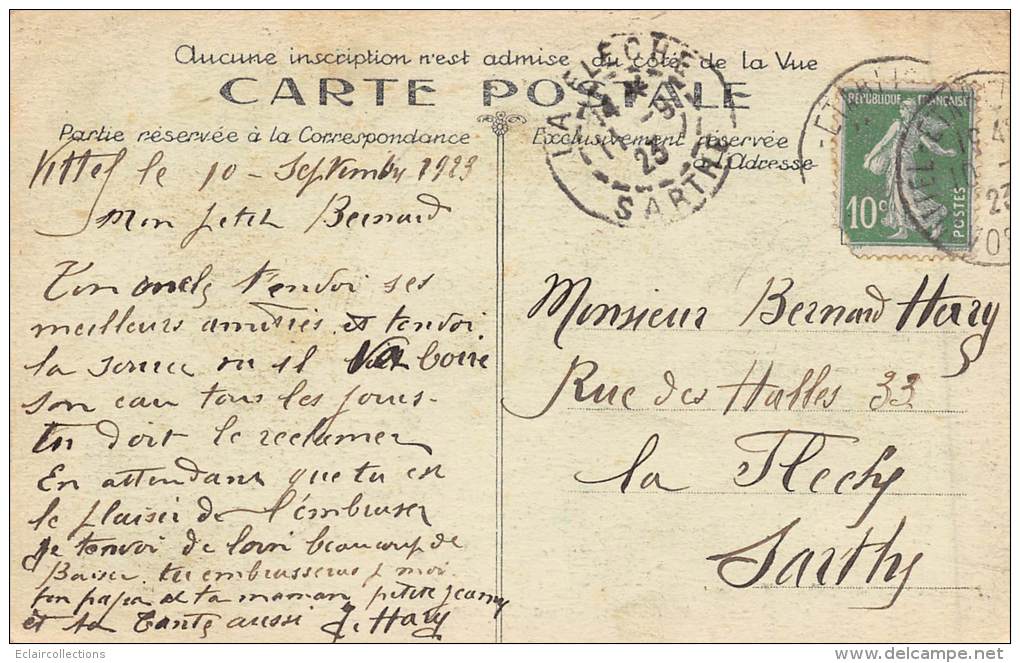 Aucune inscription n'est admise du côté de la Vue
CARTE POSTALE
Partie réservée à la Correspondance
Exclusivement réservée
à l'Adresse
LA FLECHE
SARTHE
23
REPUBLIQUE FRANÇAISE
10c
POSTES
VITTEL-ETABLIS
23
Vittel le 10 - Septembre 1923
Mon petit Bernard
Ton oncle t'envoi ses
meilleurs amitiés et t'envoi
la source ou il va boire
son eau tous les jours-
tu doit le reclamer
En attendant que tu est
le plaisir de l'embrasser
Je t'envoi de loin beaucoup de
Baiser. tu embrasseras p moi
ton papa et ta maman, petite Jeanny
et ta Tante aussi J. Hary
Monsieur Bernard Hary
Rue des Halles 33
la Fleche
Sarthe
Eclaircollections
www.delcampe.net